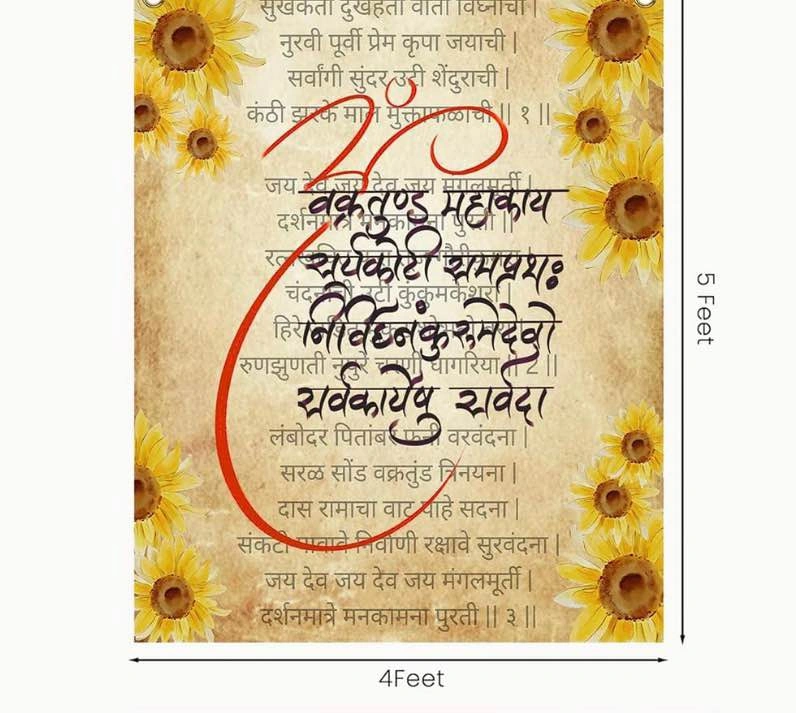 सुखकर्ता दुखहर्ता वार्ता विघ्नाची |
नुरवी पूर्वी प्रेम कृपा जयाची |
सर्वांगी सुंदर उटी शेंदुराची |
कंठी झरके माळ मुक्ताफळाची || १ ||
जय देव जय देव जय मंगलमूर्ती |
वक्रतुण्ड महाकाय
दर्शनमात्रे मनकामना पुरती ||
सूर्यकोटी समप्रभः
चंदनाची उटी कुंकुमकेशरा |
निर्विघ्नंकुरुमेदेवो
रुणझुणती नुपुरे चरणी घागरिया || 2 ||
सर्वकार्येषु सर्वदा
लंबोदर पितांबर फनी वरवंदना |
सरळ सोंड वक्रतुंड त्रिनयना |
दास रामाचा वाट पाहे सदना |
संकटी पावावे निर्वाणी रक्षावे सुरवंदना |
जय देव जय देव जय मंगलमूर्ती |
दर्शनमात्रे मनकामना पुरती || ३ ||
5 Feet
4Feet